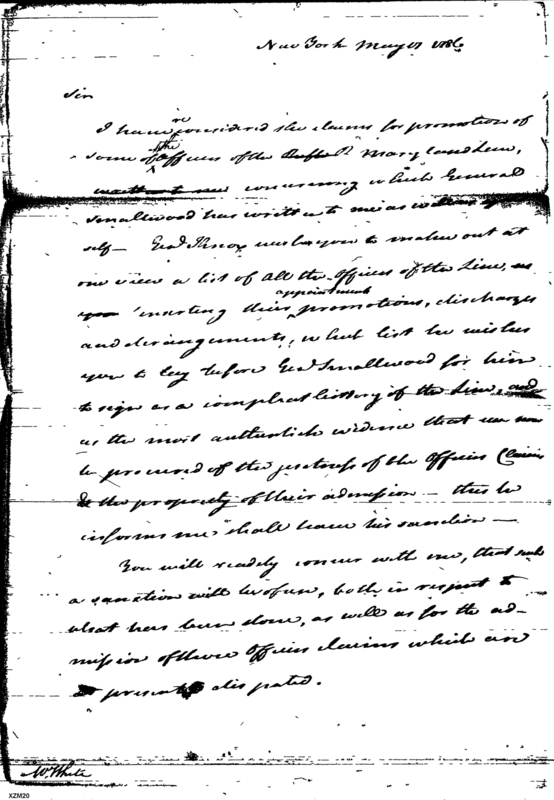 New York May 17 1786
Sir
I have reconsidered the claims for promotion of
some of the Officers of the Maryland Line,
concerning which General
Smallwood has written to me as well as your
self — Genl Knox wishes you to make out at
one view a list of all the Officers of the Line,
inserting their appointments promotions, discharges
and derangements, which list he wishes
you to lay before Genl Smallwood for him
to sign as a compleat history of the Line, and
as the most authentick evidence that can now
be procured of the justness of the Officers Claims
& the propriety of their admission — this he
informs me shall have his sanction —
You will readily concur with me, that such
a sanction will be of use, both in respect to
what has been done, as well as for the ad-
mission of those Officers claims which are
at present disputed.
Mr White
XZM20